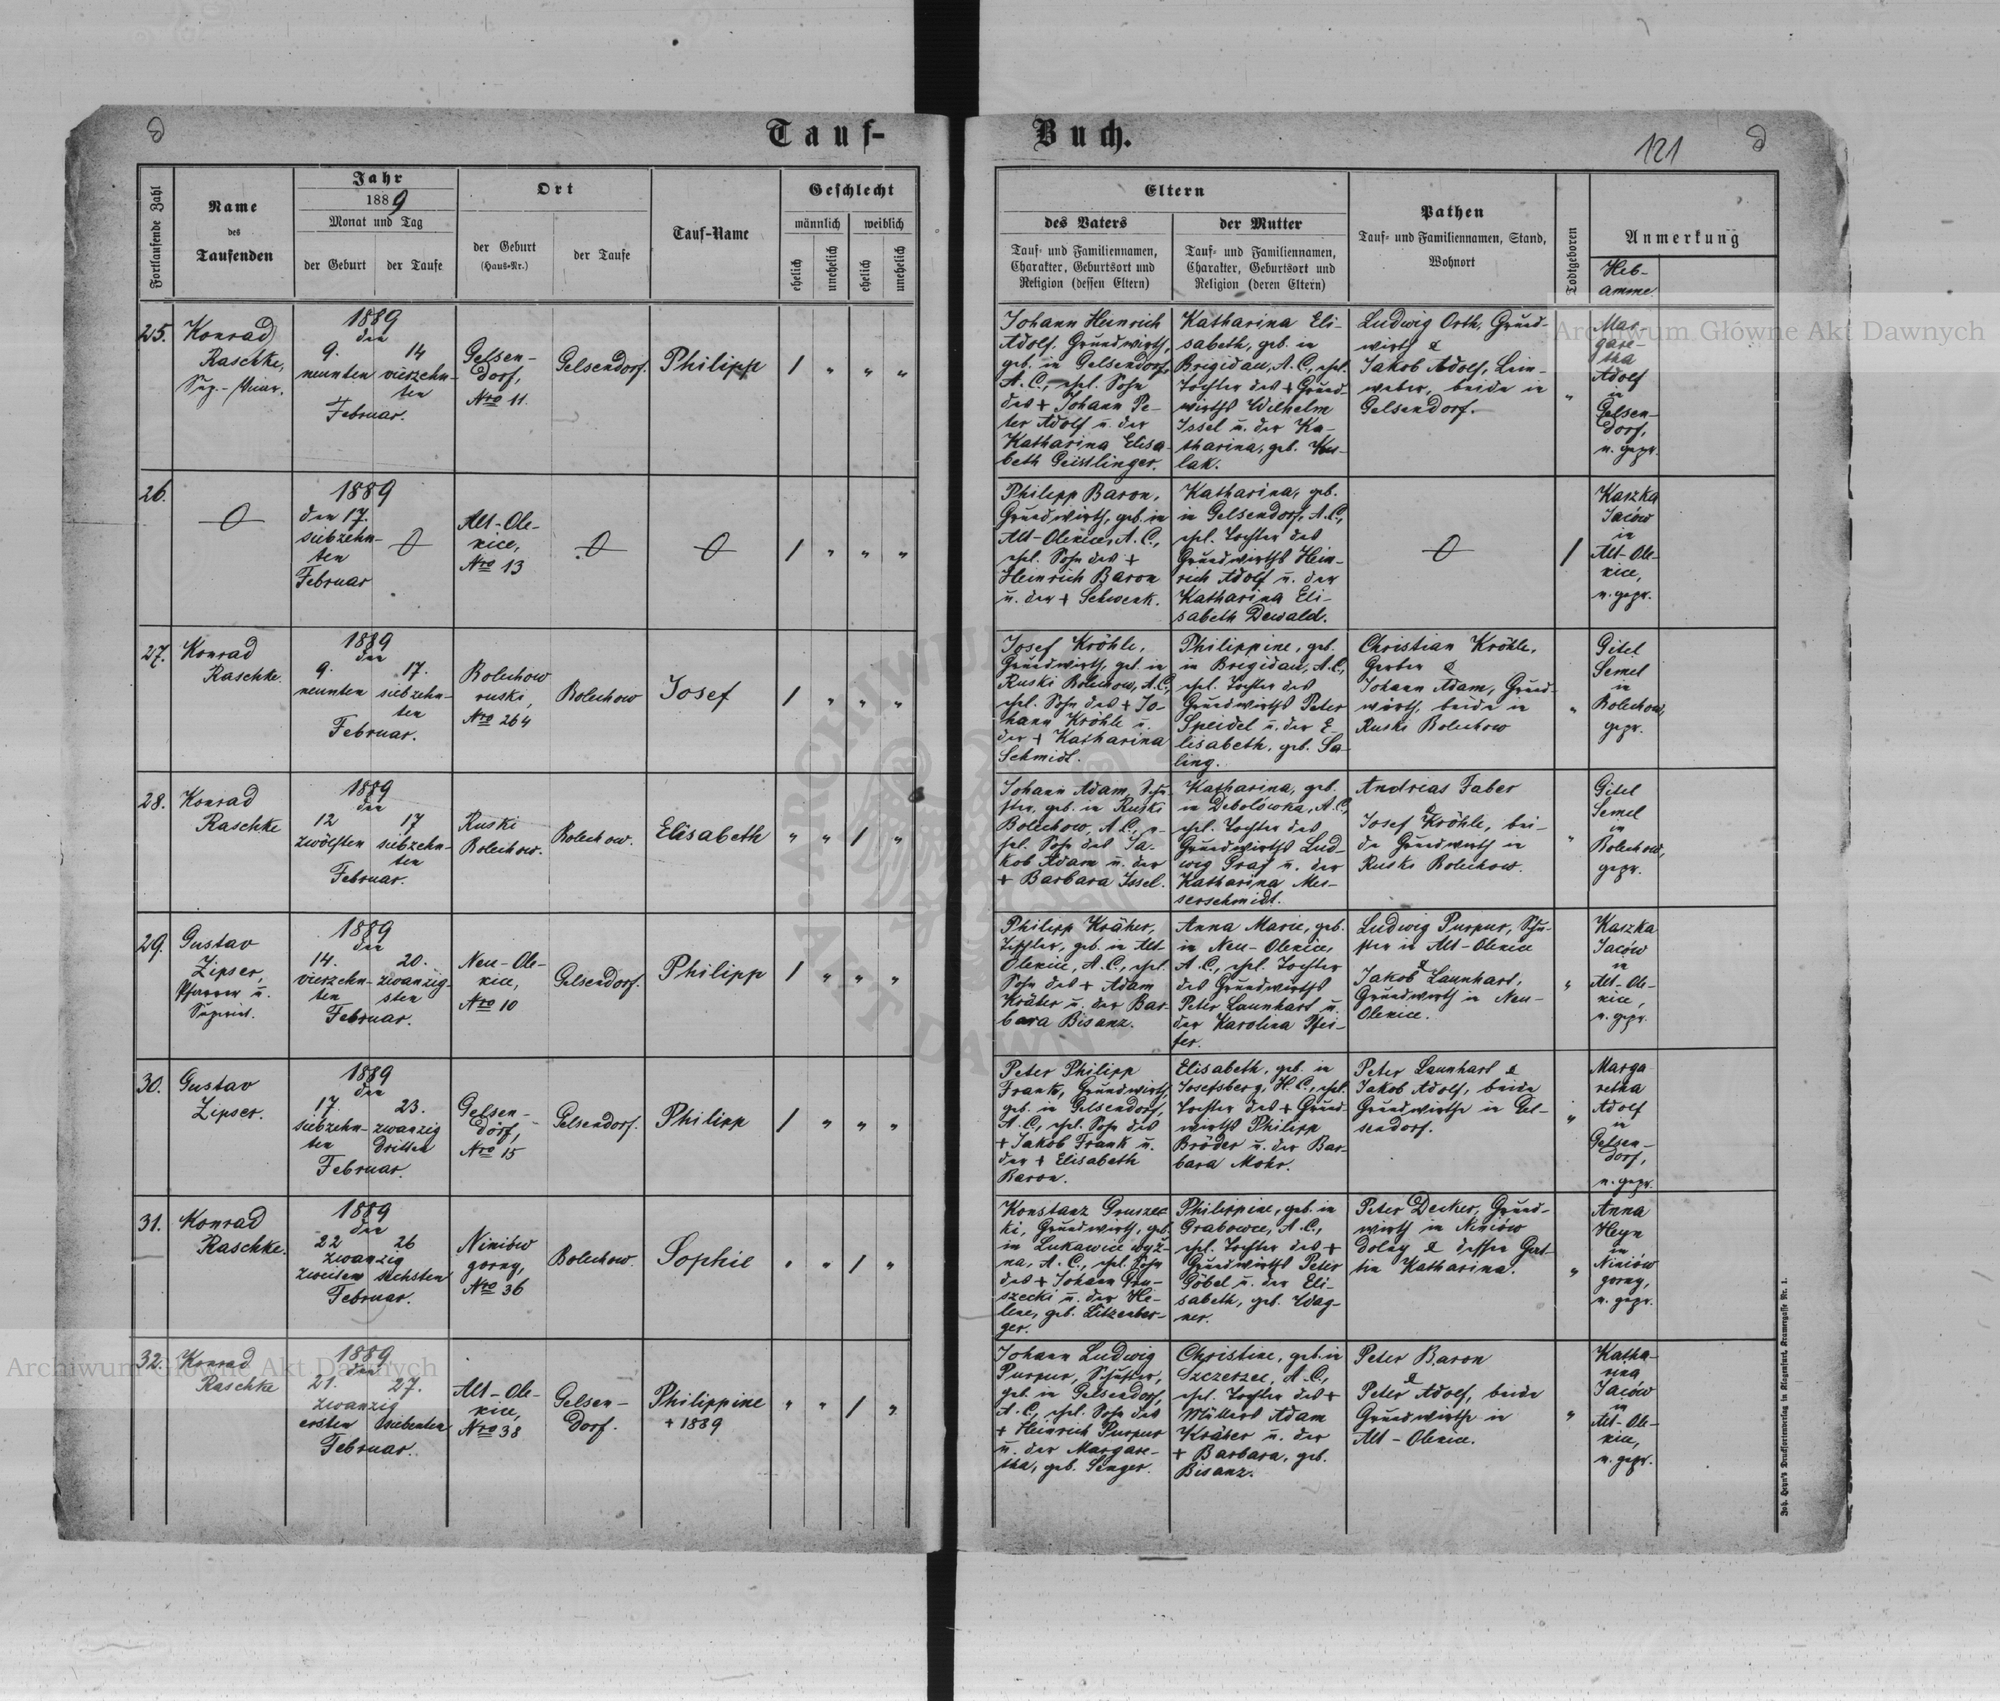 Tauf-
Buch.
121
Fortlaufende Zahl
Name
des
Taufenden
Jahr
1889
Monat und Tag
der Geburt
der Taufe
Ort
der Geburt
(Haus-Nr.)
der Taufe
Tauf-Name
Geschlecht
männlich
weiblich
ehelich
unehelich
ehelich
unehelich
Eltern
des Vaters
Tauf- und Familiennamen,
Charakter, Geburtsort und
Religion (dessen Eltern)
der Mutter
Tauf- und Familiennamen,
Charakter, Geburtsort und
Religion (deren Eltern)
Pathen
Tauf- und Familiennamen, Stand,
Wohnort
Todtgeboren
Anmerkung
Heb-
amme.
25.
Konrad
Raschke,
1889
den
9. 14
neunten vierzehn-
ten
Februar.
Gelsen-
dorf,
Nro 11.
Gelsendorf.
Philipp
/ " " "
Johann Heinrich
Adolf, Grundwirth,
geb. in Gelsendorf,
A. C., ehel. Sohn
des + Johann Pe-
ter Adolf u. der
Katharina Elisa-
beth Geistlinger.
Katharina Eli-
sabeth, geb. in
Brigidau, A. C., ehel.
Tochter des + Grund-
wirths Wilhelm
Issel u. der Ka-
tharina, geb.
lak.
Ludwig Orth, Grund-
wirth &
Jakob Adolf, Lein-
weber, beide in
Gelsendorf.
"
Mar-
gare-
tha
Adolf
in
Gelsen-
dorf,
u. gepr.
26.
1889
den 17.
siebzehn-
ten
Februar
Alt-Ole-
xice,
Nro 13
/ " " "
Philipp Baron,
Grundwirth, geb. in
Alt-Olexice, A. C.,
ehel. Sohn des +
Heinrich Baron
u. der + Schwenk.
Katharina, geb.
in Gelsendorf, A. C.,
ehel. Tochter des
Grundwirths Hein-
rich Adolf u. der
Katharina Eli-
sabeth Dewald.
/
Kaszka
Jaców
in
Alt-Ole-
xice,
u. gepr.
27.
Konrad
Raschke.
1889
den
9. 17.
neunten siebzehn-
ten
Februar.
Bolechow
ruski,
Nro 264
Bolechow
Josef
/ " " "
Josef Kröhle,
Grundwirth, geb. in
Ruski Bolechow, A. C.,
ehel. Sohn des + Jo-
hann Kröhle u.
der + Katharina
Schmidt.
Philippine, geb.
in Brigidau, A. C.,
ehel. Tochter des
Grundwirths Peter
Speidel u. der E-
lisabeth, geb. Sa-
ling.
Christian Kröhle,
Gerber &
Johann Adam, Grund-
wirth, beide in
Ruski Bolechow
"
Gitel
Semel
in
Bolechow,
gepr.
28.
Konrad
Raschke
1889
den
12 17
zwölften siebzehn-
ten
Februar.
Ruski
Bolechow.
Bolechow.
Elisabeth
" " / "
Johann Adam, Schu-
ster, geb. in Ruski
Bolechow, A. C., e-
hel. Sohn des Ja-
kob Adam u. der
+ Barbara Issel.
Katharina, geb.
in Debolowka, A. C.,
ehel. Tochter des
Grundwirths Lud-
wig Graf u. der
Katharina Mes-
serschmidt.
Andreas Faber
&
Josef Kröhle, bei-
de Grundwirth in
Ruski Bolechow.
"
Gitel
Semel
in
Bolechow,
gepr.
29.
Gustav
Zipser,
Pfarrer u.
1889
den
14. 20.
vierzehn- zwanzig-
ten sten
Februar.
Neu-Ole-
xice,
Nro 10
Gelsendorf.
Philipp
/ " " "
Philipp Kräher,
Tischler, geb. in Alt
Olexice, A. C., ehel.
Sohn des + Adam
Kräher u. der Bar-
bara Bisanz.
Anna Marie, geb.
in Neu-Olexice,
A. C., ehel. Tochter
des Grundwirths
Peter Launhart u.
der Karolina Pfei-
fer.
Ludwig Purpur, Schu-
ster in Alt-Olexice
&
Jakob Launhart,
Grundwirth in Neu-
Olexice.
"
Kaszka
Jaców
in
Alt-Ole-
xice,
u. gepr.
30.
Gustav
Zipser.
1889
den
17. 23.
siebzehn- zwanzig
ten dritten
Februar.
Gelsen-
dorf,
Nro 15
Gelsendorf.
Philipp
/ " " "
Peter Philipp
Frank, Grundwirth,
geb. in Gelsendorf,
A. C., ehel. Sohn des
+ Jakob Frank u.
der + Elisabeth
Baron.
Elisabeth, geb. in
Josefsberg, H. C., ehel.
Tochter des + Grund-
wirths Philipp
Bröder u. der Bar-
bara Mohr.
Peter Launhart &
Jakob Adolf, beide
Grundwirthe in Gel-
sendorf.
"
Marga
retha
Adolf
in
Gelsen-
dorf,
u. gepr.
31.
Konrad
Raschke.
1889
den
22 26
zwanzig
zweiten sechsten
Februar.
Niniów
gorny,
Nro 36
Bolechow.
Sophie
" " / "
Konstanz Gruszec
ki, Grundwirth, geb.
in Lukawice wyż-
na, A. C., ehel. Sohn
des + Johann Gru-
szecki u. der He-
lene, geb. Litzenber-
ger.
Philippine, geb. in
Grabowce, A. C.,
ehel. Tochter des +
Grundwirths Peter
Göbel u. der Eli-
sabeth, geb. Wag-
ner.
Peter Decker, Grund-
wirth in Niniów
dolny & dessen Gat-
tin Katharina.
"
Anna
Heyn
in
Niniów
gorny,
u. gepr.
32.
Konrad
Raschke
1889
den
21. 27.
zwanzig
ersten siebenten
Februar.
Alt-Ole-
xice,
Nro 38
Gelsen-
dorf.
Philippine
+ 1889
" " / "
Johann Ludwig
Purpur, Schuster,
geb. in Gelsendorf,
A. C., ehel. Sohn des
+ Heinrich Purpur
u. der Margare-
tha, geb. Senger.
Christine, geb. in
Szczerzec, A. C.,
ehel. Tochter des +
Müllers Adam
Kräher u. der
+ Barbara, geb.
Bisanz.
Peter Baron
&
Peter Adolf, beide
Grundwirthe in
Alt-Olexice.
"
Katha-
rina
Jaców
in
Alt-Ole-
xice,
u. gepr.
Joh. Heyn's Drucksortenverlag in Klagenfurt, Kramergasse Nr. 1.
Archiwum Główne Akt Dawnych
Archiwum Główne Akt Dawnych